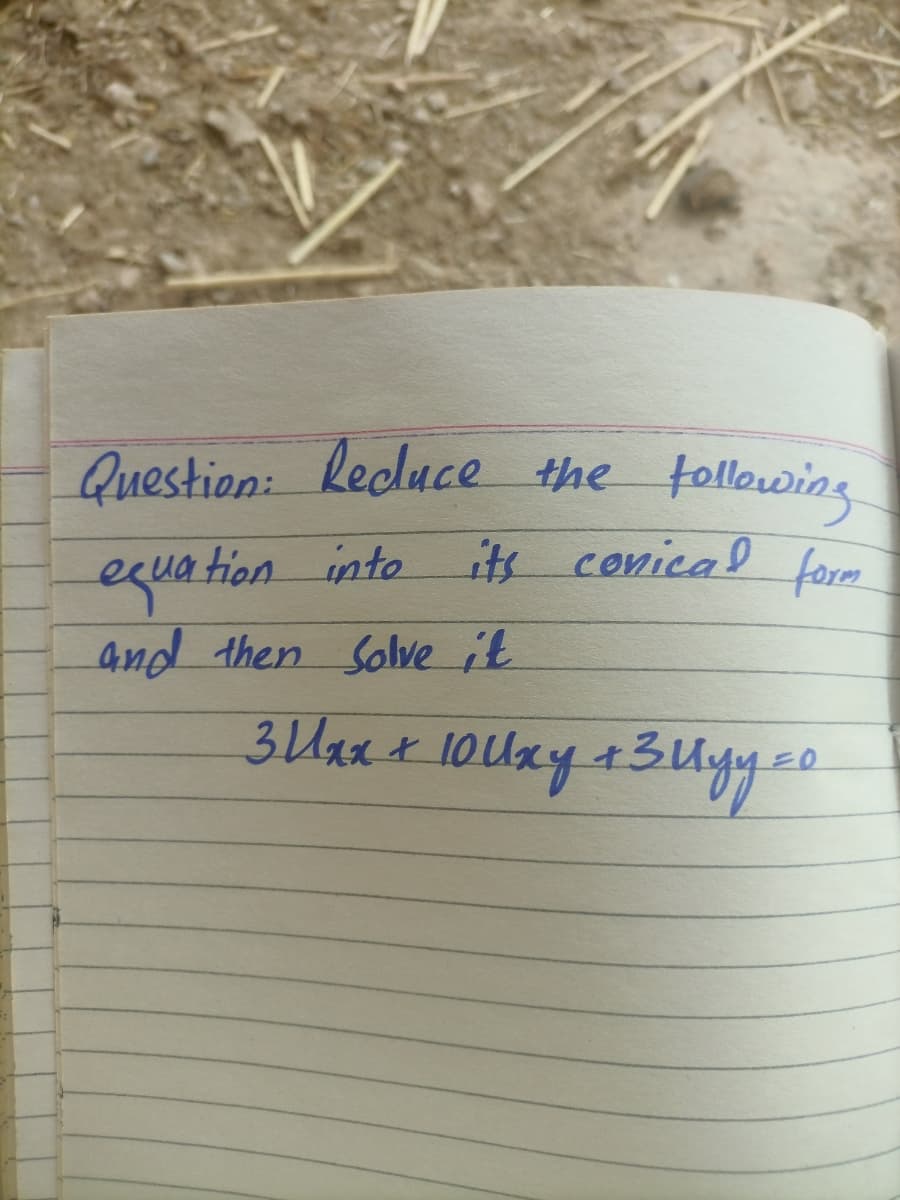 Question: Reduce the following
equation into its conical form
and then solve it
3Uxx + 10Uxy + 3Uyy = 0